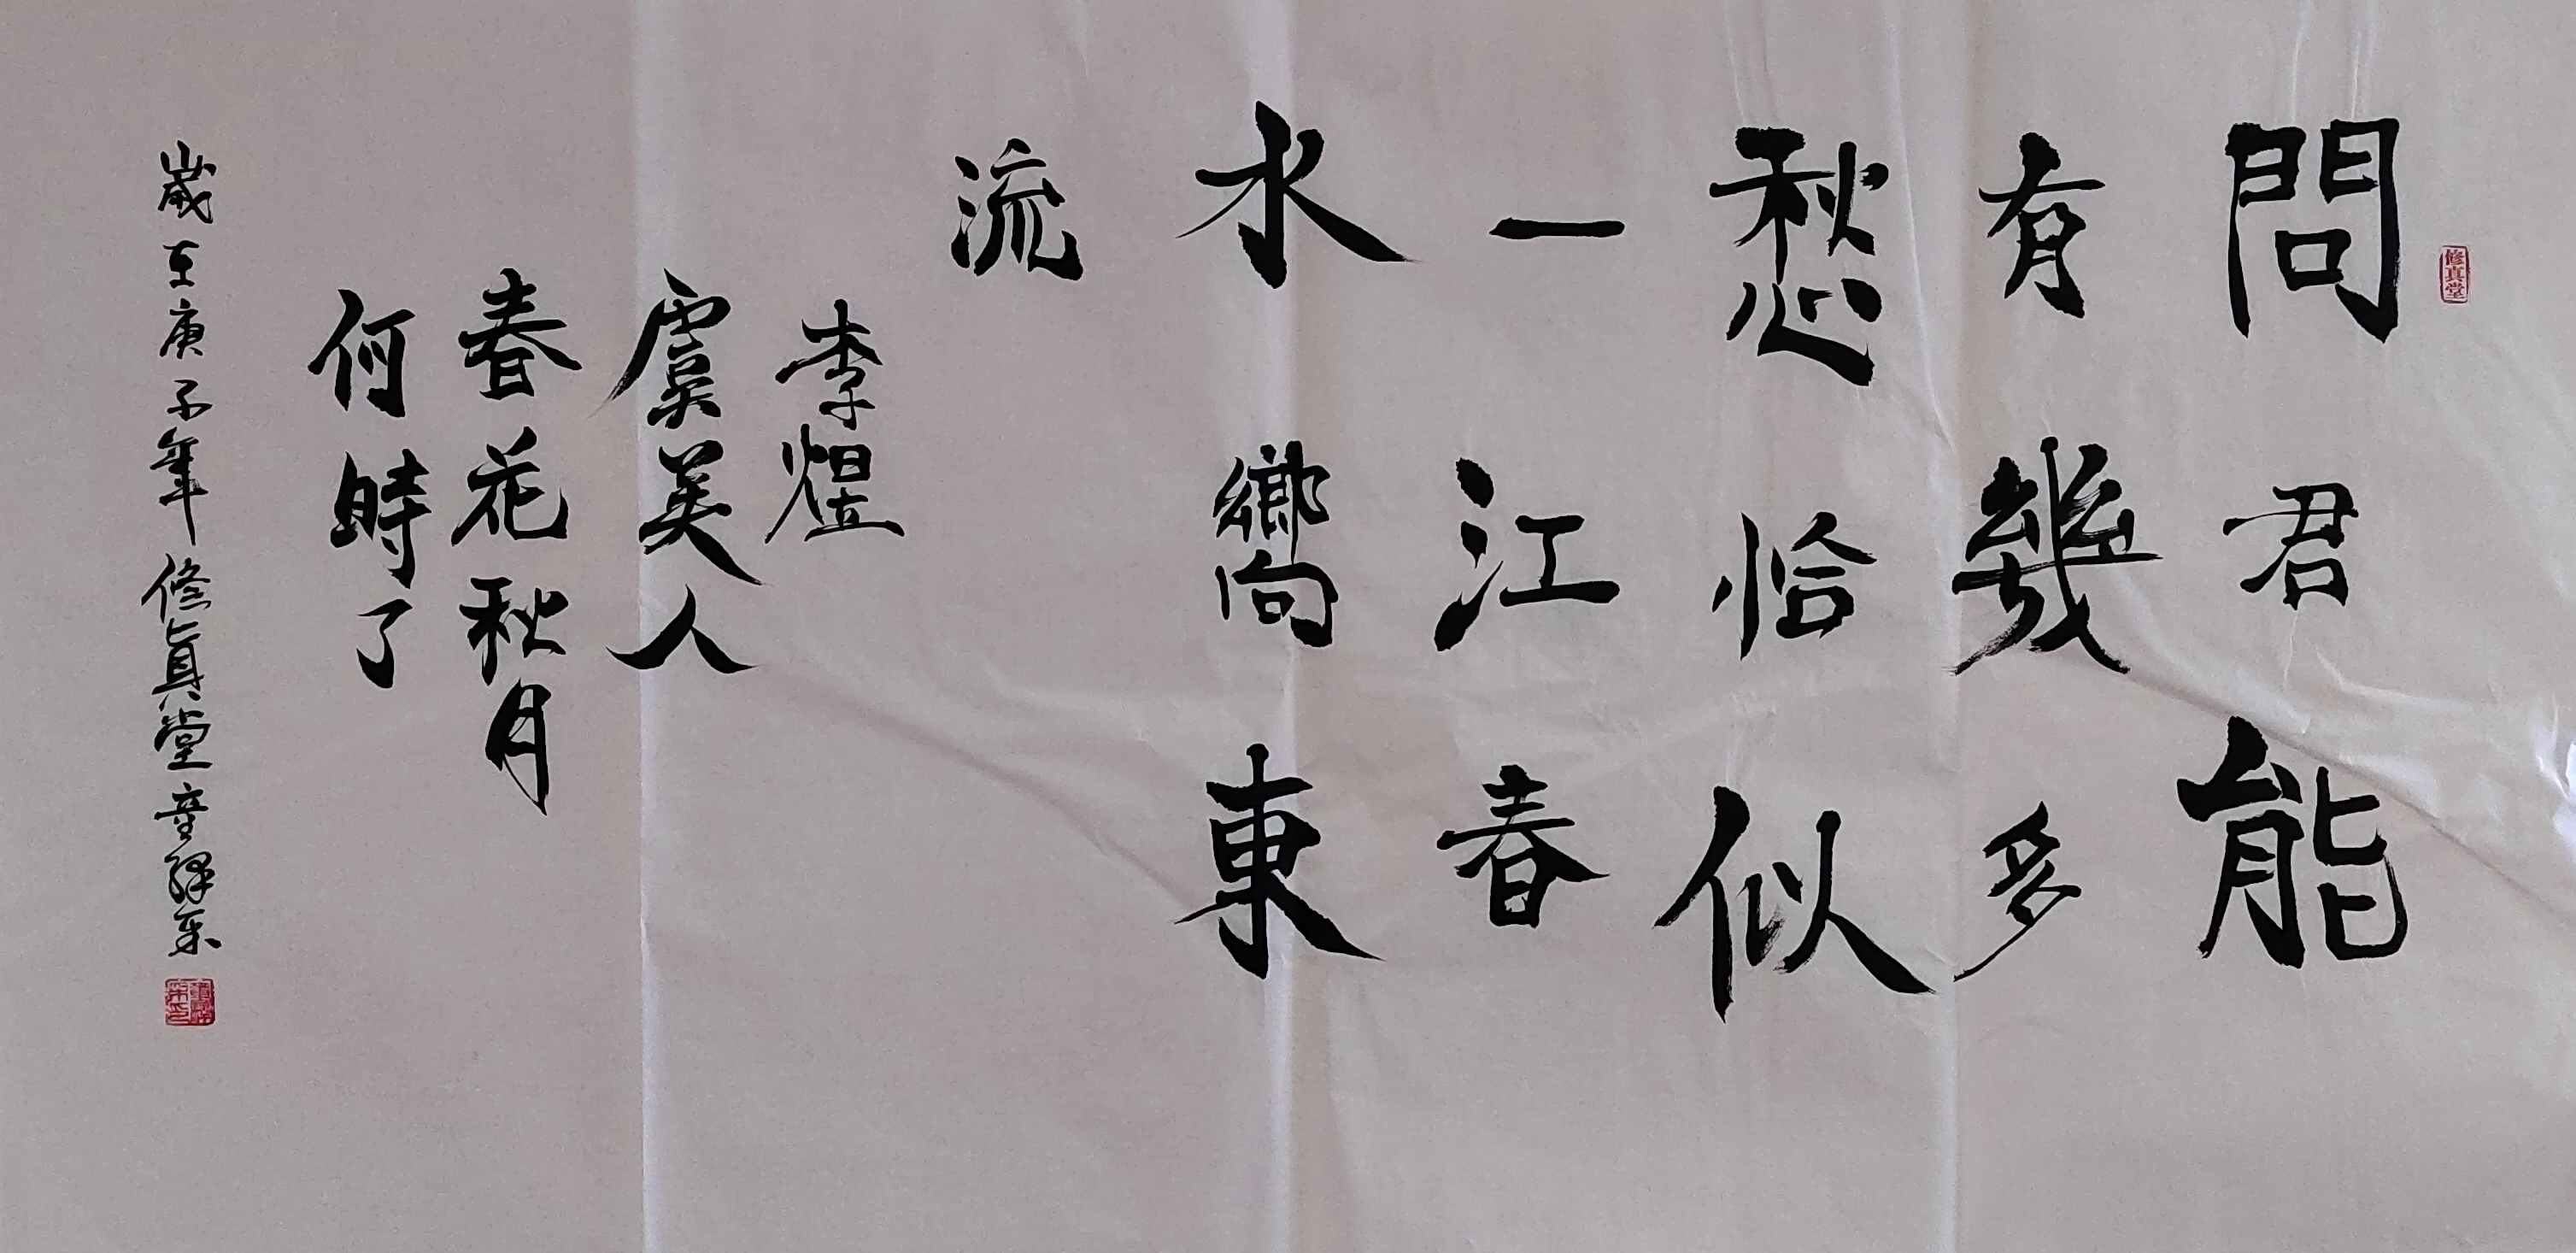 修真堂
問君能
有幾多
愁恰似
一江春
水嚮東
流
李煜
虞美人
春花秋月
何時了
歲在庚子年修真堂童